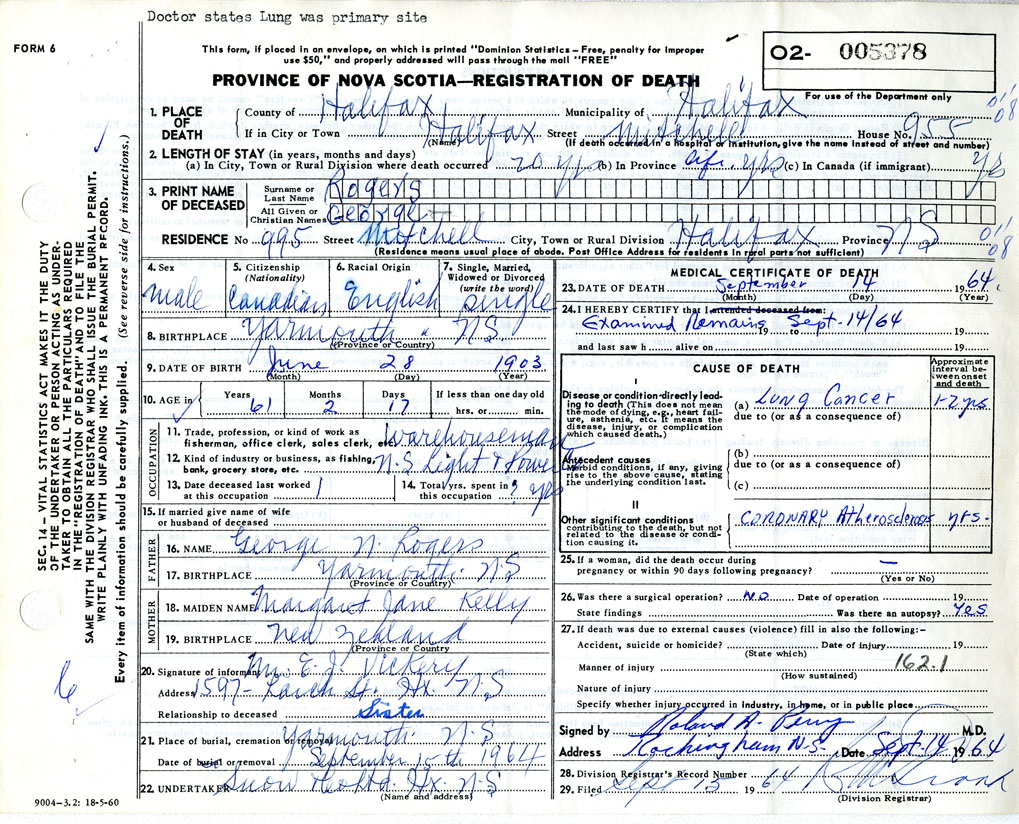 Doctor states Lung was primary site
FORM 6
This form, if placed in an envelope, on which is printed "Dominion Statistics – Free, penalty for improper
use $50," and properly addressed will pass through the mail "FREE"
O2- 005378
For use of the Department only
PROVINCE OF NOVA SCOTIA—REGISTRATION OF DEATH
1. PLACE OF DEATH
County of Halifax Municipality of Halifax
If in City or Town Halifax Street Mitchell House No. 955
(Name) (If death occurred in a hospital or institution, give the name instead of street and number)
2. LENGTH OF STAY (in years, months and days)
(a) In City, Town or Rural Division where death occurred 20 yrs (b) In Province life yrs (c) In Canada (if immigrant) yrs
3. PRINT NAME OF DECEASED
Surname or Last Name Rogers
All Given or Christian Names George
RESIDENCE No 995 Street Mitchell City, Town or Rural Division Halifax Province NS
(Residence means usual place of abode. Post Office Address for residents in rural parts not sufficient)
01 08
01 08
4. Sex male
5. Citizenship (Nationality) Canadian
6. Racial Origin English
7. Single, Married, Widowed or Divorced (write the word) single
8. BIRTHPLACE Yarmouth N.S.
(Province or Country)
9. DATE OF BIRTH June 28 1903
(Month) (Day) (Year)
10. AGE in Years 61 Months 2 Days 17 If less than one day old hrs. or min.
OCCUPATION
11. Trade, profession, or kind of work as fisherman, office clerk, sales clerk, etc. Warehouseman
12. Kind of industry or business, as fishing, bank, grocery store, etc. N.S. Light & Power
13. Date deceased last worked at this occupation
14. Total yrs. spent in this occupation ? yrs
15. If married give name of wife or husband of deceased
FATHER
16. NAME George N. Rogers
17. BIRTHPLACE Yarmouth N.S
(Province or Country)
MOTHER
18. MAIDEN NAME Margaret Jane Kelly
19. BIRTHPLACE New Zealand
(Province or Country
20. Signature of informant E. J. Vickery
Address 1597- St. Hx. N.S
Relationship to deceased Sister
21. Place of burial, cremation or removal Yarmouth N.S
Date of burial or removal September 15th 1964
22. UNDERTAKER Snow Hx N.S
(Name and address)
9004–3.2: 18-5-60
MEDICAL CERTIFICATE OF DEATH
23. DATE OF DEATH September 14 1964
(Month) (Day) (Year)
24. I HEREBY CERTIFY that I attended deceased from:
Examined Remains Sept-14/64 19 to 19
and last saw h alive on 19
CAUSE OF DEATH
Approximate interval between onset and death
I
Disease or condition directly leading to death (This does not mean the mode of dying, e.g., heart failure, asthenia, etc. It means the disease, injury, or complication which caused death.)
(a) Lung Cancer 1-2 yrs
due to (or as a consequence of)
Antecedent causes
Morbid conditions, if any, giving rise to the above cause, stating the underlying condition last.
(b)
due to (or as a consequence of)
(c)
II
Other significant conditions contributing to the death, but not related to the disease or condition causing it.
CORONARY Atherosclerosis yrs-
25. If a woman, did the death occur during pregnancy or within 90 days following pregnancy? —
(Yes or No)
26. Was there a surgical operation? No Date of operation 19
State findings Was there an autopsy? Yes
27. If death was due to external causes (violence) fill in also the following:–
Accident, suicide or homicide? Date of injury 19
(State which)
Manner of injury 162.1
(How sustained)
Nature of injury
Specify whether injury occurred in industry, in home, or in public place
Signed by Roland A. Perry M.D.
Address Rockingham N.S. Date Sept-14 1964
28. Division Registrar's Record Number
29. Filed Sept 15 1964
(Division Registrar)
SEC. 14 – VITAL STATISTICS ACT MAKES IT THE DUTY
OF THE UNDERTAKER OR PERSON ACTING AS UNDERTAKER TO OBTAIN ALL THE PARTICULARS REQUIRED
IN THE "REGISTRATION OF DEATH" AND TO FILE THE
SAME WITH THE DIVISION REGISTRAR WHO SHALL ISSUE THE BURIAL PERMIT.
WRITE PLAINLY WITH UNFADING INK. THIS IS A PERMANENT RECORD.
Every item of information should be carefully supplied. (See reverse side for instructions.)